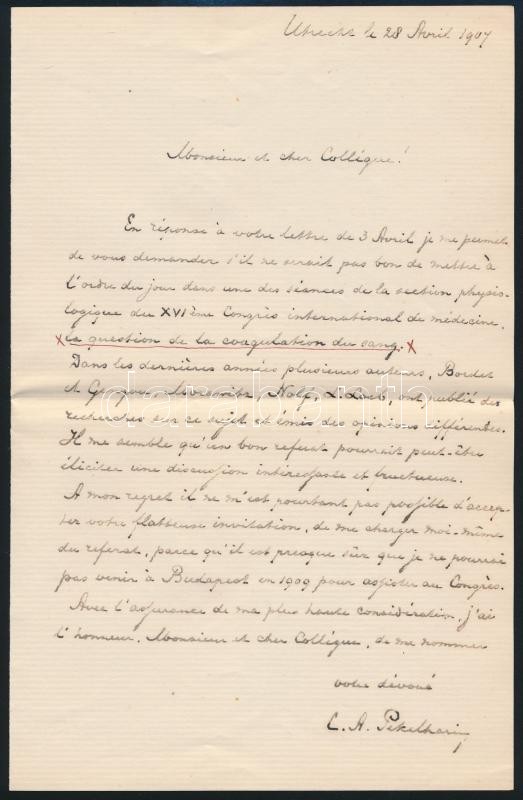 Utrecht le 28 Avril 1907
Monsieur et cher Collégue!
En réponse à votre lettre de 3 Avril je me permet
de vous demander s'il ne serait pas bon de mettre à
l'ordre du jour dans une des séances de la section physio-
logique du XVIème Congrès international de médecine,
x la question de la coagulation du sang. x
Dans les dernières années plusieurs auteurs, Bordet
et Gengou, Morawitz, Nolf, L. Loeb, ont publié des
recherches sur ce sujet et émis des opinions différentes.
Il me semble qu'un bon referat pourrait peut-être
éliciter une discussion intéressante et fructueuse.
A mon regret il ne m'est pourtant pas possible d'accep-
ter votre flatteuse invitation, de me charger moi-même
du referat, parce qu'il est presque sûr que je ne pourrai
pas venir à Budapest en 1909 pour assister au Congrès.
Avec l'assurance de ma plus haute considération, j'ai
l'honneur, Monsieur et cher Collégue, de me nommer
votre dévoué
C. A. Pekelharing
darabanth